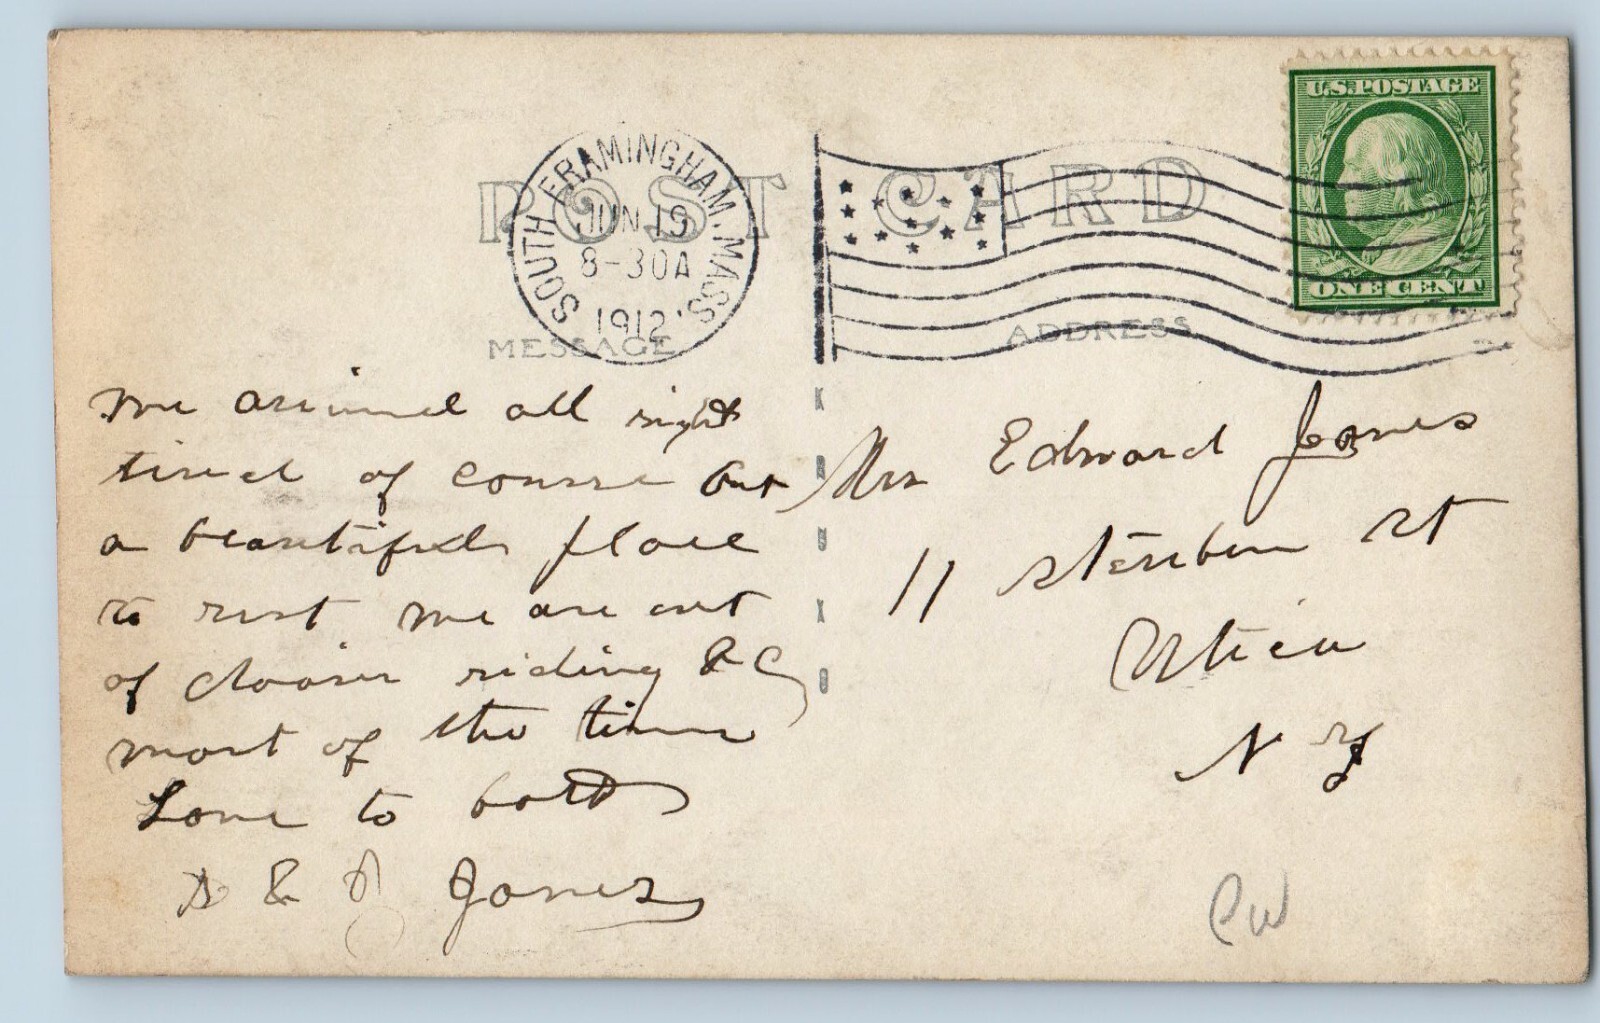 U.S. POSTAGE
ONE CENT
SOUTH FRAMINGHAM, MASS.
JUN 19
8-30A
1912
POST CARD
MESSAGE
ADDRESS
we arived all right
tired of course but
a beautiful place
to rest we are out
of doors riding &c
most of the time
Love to both
& J Jones
Mrs Edward Jones
11 St
Utica
N Y
PW